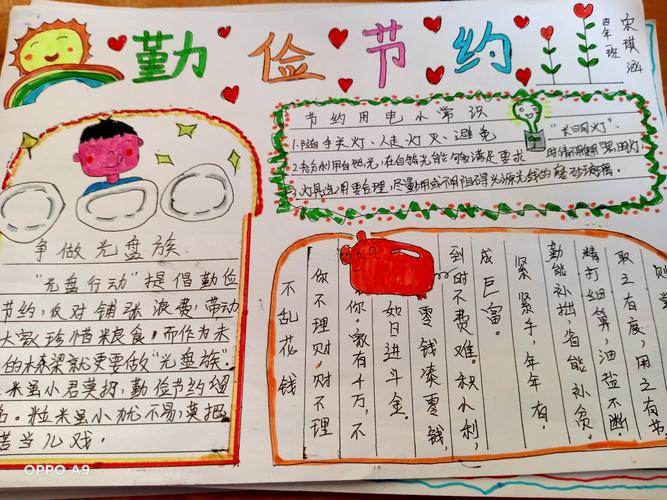 勤俭节约
四年 班
宋琪涵
节约用电小常识
1.随手关灯、人走灯灭、避免“长明灯”、
2.充分利用自然光,在自然光能够满足要求时
3.灯具选用要合理,尽量
争做光盘族.
“光盘行动”提倡勤俭
节约,反对铺张浪费,带动
大家珍惜粮食,而作为未
的栋梁就更要做“光盘族”
米虽小君莫扔,勤俭节约留
名。粒米虽小犹不易,莫把
苦当儿戏。
取之有度,用之有节
精打细算,油盐不断。
勤能补拙,省能补贫。
紧紧手,年年有。
成巨富。
到时不费难。积小利,
零钱凑零钱,
如日进斗金。
你。家有千万,不
你不理财财不理
不乱花钱
OPPO A9